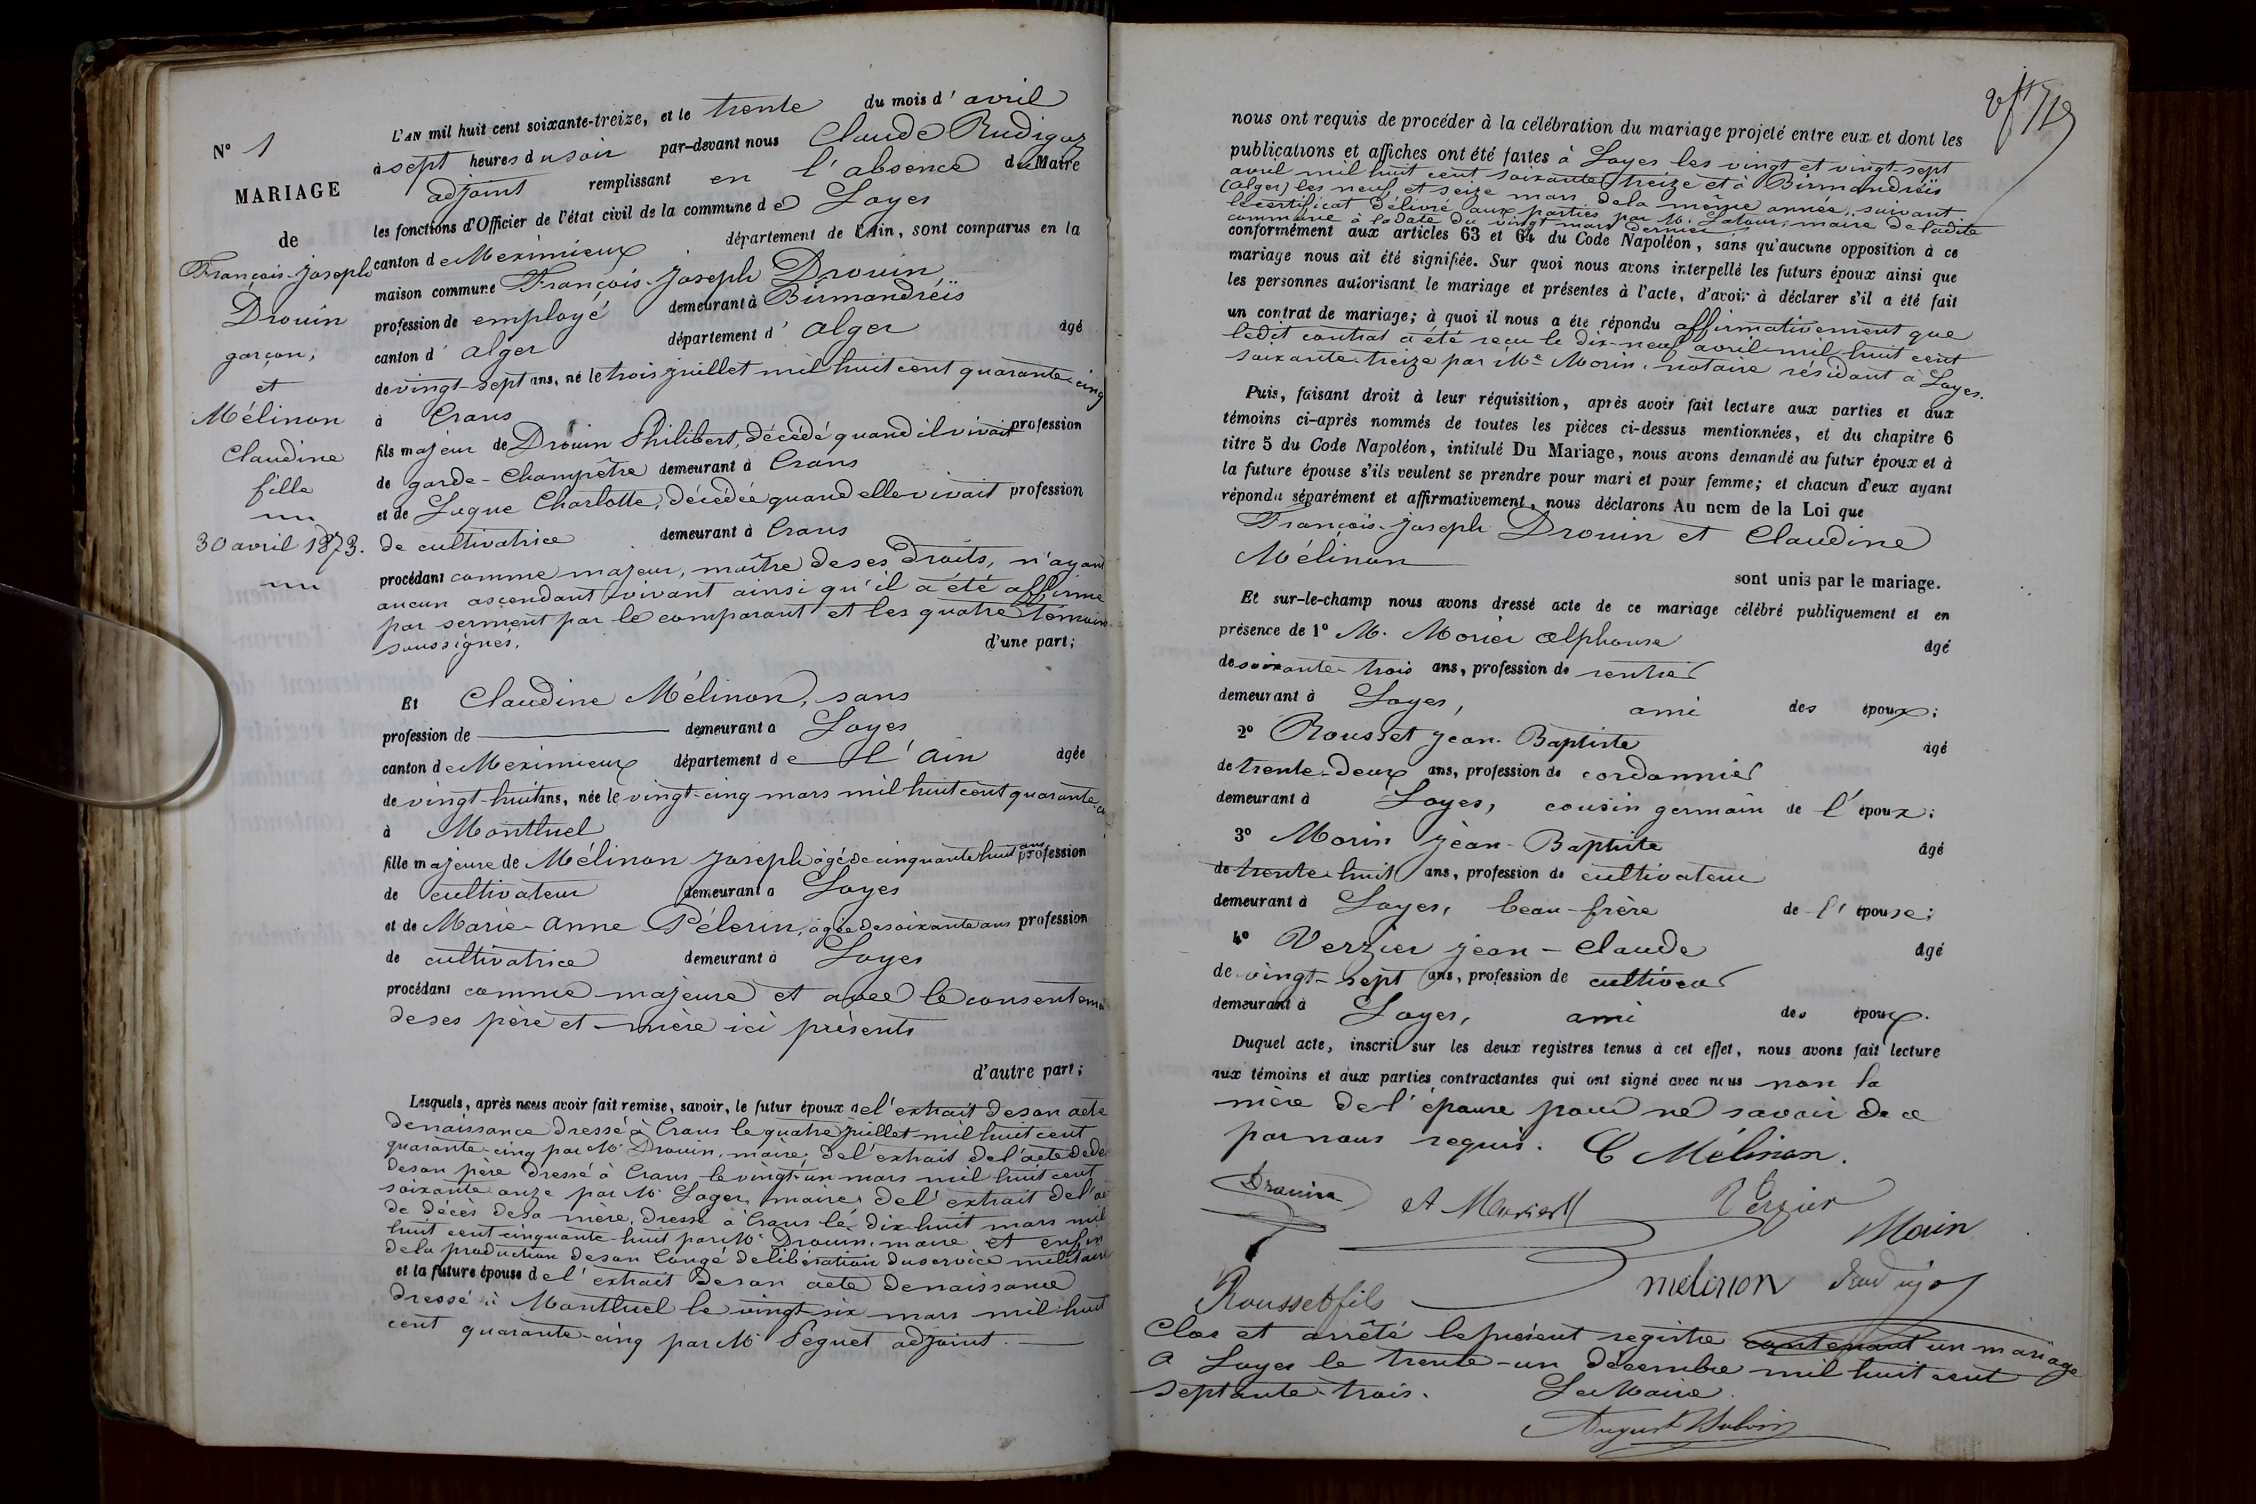 N° 1
MARIAGE
de
François-Joseph
Drouin
garçon,
et
Mélinon
Claudine
fille
30 avril 1873.
L'AN mil huit cent soixante-treize, et le trente du mois d'avril
à sept heures du soir par-devant nous Claude Rudigoz
adjoint remplissant en l'absence du Maire
les fonctions d'Officier de l'état civil de la commune de Loyes
canton de Meximieux département de l'Ain, sont comparus en la
maison commune François-Joseph Drouin
profession de employé demeurant à Birmandréïs
canton d'alger département d'alger âgé
de vingt-sept ans, né le trois juillet mil huit cent quarante-cinq
à Crans
fils majeur de Drouin Philibert, décédé quand il vivait profession
de garde-Champêtre demeurant à Crans
et de Lugue Charlotte, décédée quand elle vivait profession
de cultivatrice demeurant à Crans
procédant comme majeur, maître de ses droits, n'ayant
aucun ascendant vivant ainsi qu'il a été affirmé
par serment par le comparant et les quatre témoins
soussignés, d'une part;
Et Claudine Mélinon, sans
profession de demeurant à Loyes
canton de Meximieux département de l'Ain âgée
de vingt-huit ans, née le vingt-cinq mars mil huit cent quarante-
à Montluel
fille majeure de Mélinon Joseph âgé de cinquante huit ans profession
de cultivateur demeurant à Loyes
et de Marie-Anne Pélerin, âgée de soixante ans profession
de cultivatrice demeurant à Loyes
procédant comme majeure et avec le consentem
de ses père et mère ici présents
d'autre part;
Lesquels, après nous avoir fait remise, savoir, le futur époux de l'extrait de son acte
de naissance dressé à Crans le quatre juillet mil huit cent
quarante-cinq par Mr Drouin, maire, de l'extrait de l'acte de dé
de son père dressé à Crans le vingt-un mars mil huit cent
soixante onze par Mr Loger, maire, de l'extrait de l'ac
de décès de sa mère, dressé à Crans le dix-huit mars mil
huit cent cinquante-huit par Mr Drouin, maire et enfin
de la production de son Congé de libération du service militaire
et la future épouse de l'extrait de son acte de naissance
dressé à Montluel le vingt-six mars mil huit
cent quarante-cinq par Mr Peguet adjoint.
nous ont requis de procéder à la célébration du mariage projeté entre eux et dont les
publications et affiches ont été faites à Loyes les vingt et vingt-sept
avril mil huit cent soixante treize et à Birmandréïs
(alger) les neuf et seize mars de la même année, suivant
le certificat délivré aux parties par Mr. Latour, maire de ladite
commune à la date du vingt mars dernier
conformément aux articles 63 et 64 du Code Napoléon, sans qu'aucune opposition à ce
mariage nous ait été signifiée. Sur quoi nous avons interpellé les futurs époux ainsi que
les personnes autorisant le mariage et présentes à l'acte, d'avoir à déclarer s'il a été fait
un contrat de mariage; à quoi il nous a été répondu affirmativement que
ledit contrat a été reçu le dix-neuf avril mil huit cent
soixante-treize par Me Morin, notaire résidant à Loyes.
Puis, faisant droit à leur réquisition, après avoir fait lecture aux parties et aux
témoins ci-après nommés de toutes les pièces ci-dessus mentionnées, et du chapitre 6
titre 5 du Code Napoléon, intitulé Du Mariage, nous avons demandé au futur époux et à
la future épouse s'ils veulent se prendre pour mari et pour femme; et chacun d'eux ayant
répondu séparément et affirmativement, nous déclarons Au nom de la Loi que
François-Joseph Drouin et Claudine
Mélinon
sont unis par le mariage.
Et sur-le-champ nous avons dressé acte de ce mariage célébré publiquement et en
présence de 1° M. Morier Alphonse âgé
de soixante-trois ans, profession de rentier
demeurant à Loyes, ami des époux;
2° Rousset Jean-Baptiste âgé
de trente-deux ans, profession de cordonnier
demeurant à Loyes, cousin germain de l'époux;
3° Morin Jean-Baptiste âgé
de trente-huit ans, profession de cultivateur
demeurant à Loyes, beau-frère de l'épouse;
4° Verzier Jean-Claude âgé
de vingt-sept ans, profession de cultiveur
demeurant à Loyes, ami des époux.
Duquel acte, inscrit sur les deux registres tenus à cet effet, nous avons fait lecture
aux témoins et aux parties contractantes qui ont signé avec nous non la
mère de l'épouse pour ne savoir de ce
par nous requis. C Mélinon.
Drouin A Morier Verzier
Morin
Rousset fils melinon Rudigoz
Clos et arrêté le présent registre contenant un mariage
A Loyes le trente-un décembre mil huit cent
septante-trois. Le Maire